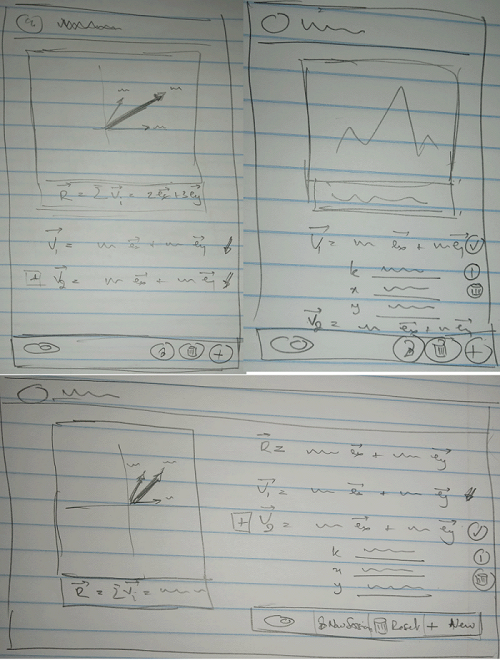 R⃗ = Σ V⃗i = 2 e⃗x + 3 e⃗y
V⃗1 = e⃗x + e⃗y
+ V⃗2 = e⃗x + e⃗y
+
V⃗1 = e⃗x + e⃗y ✓
k
i
x
y
V⃗2 = e⃗x + e⃗y
+
R⃗ = e⃗x + e⃗y
V⃗1 = e⃗x + e⃗y
+ V⃗2 = e⃗x + e⃗y ✓
k
i
x
y
R⃗ = Σ V⃗i =
New Reset + New